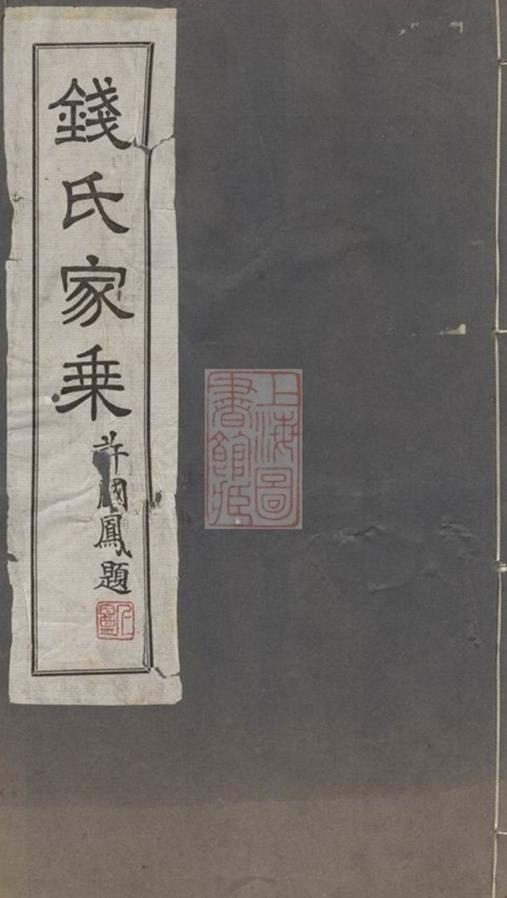 錢氏家乗
許國鳳題
上海圖書館藏